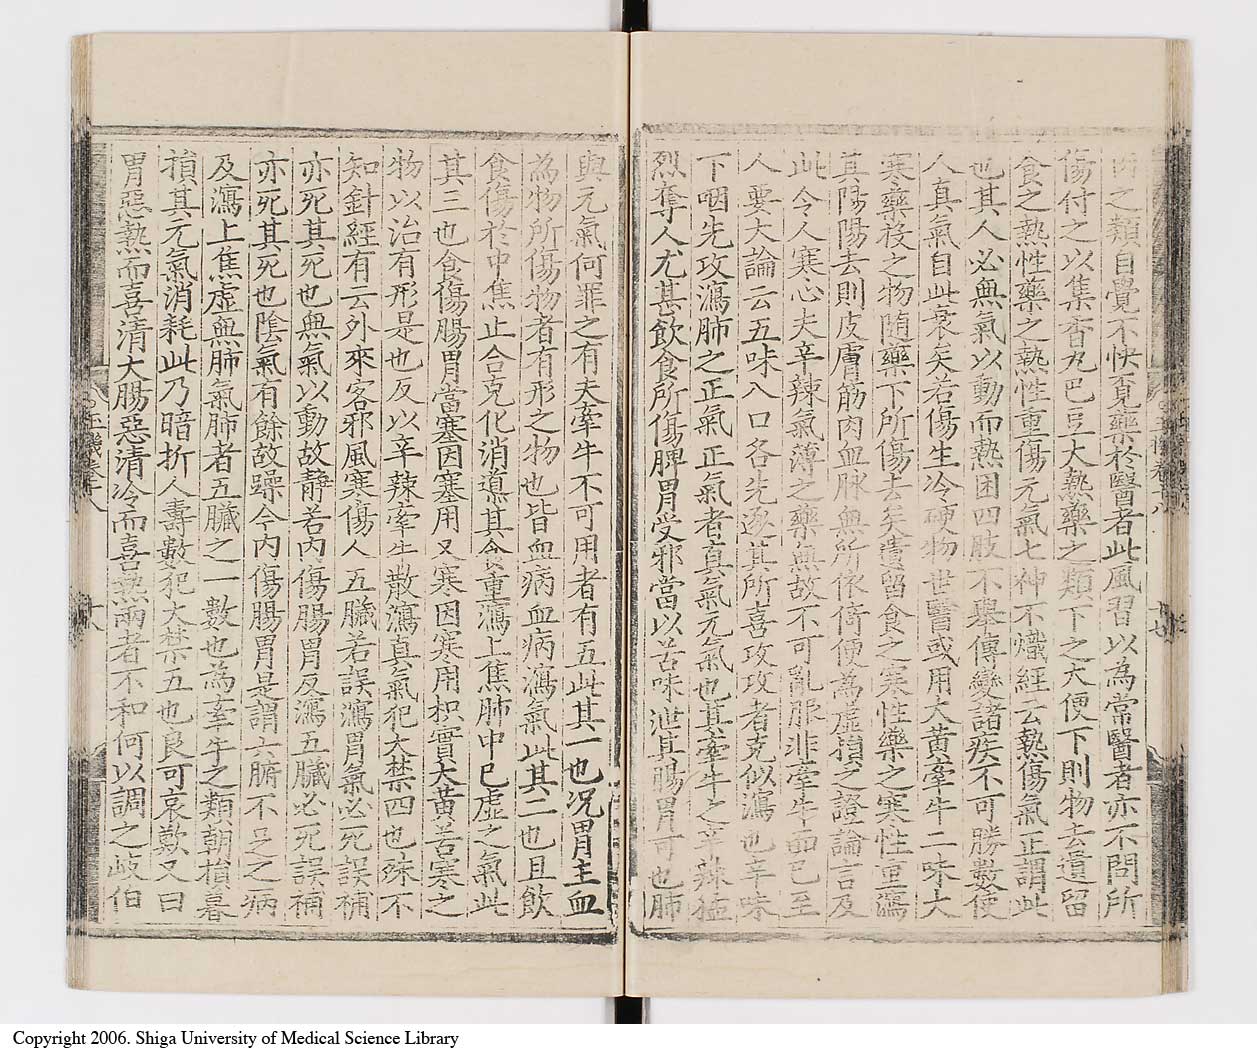 肉之類自覺不快覓藥於醫者此風習以為常醫者亦不問所
傷付之以集香丸巴豆大熱藥之類下之大便下則物去遺留
食之熱性藥之熱性重傷元氣七神不熾經云熱傷氣正謂此
也其人必無氣以動而熱困四肢不舉傳變諸疾不可勝數使
人真氣自此衰矣若傷生冷硬物世醫或用大黃牽牛二味大
寒藥投之物隨藥下所傷去矣遺留食之寒性藥之寒性重瀉
其陽陽去則皮膚筋肉血脉無所依倚便為虛損之證論言及
此令人寒心夫辛辣氣薄之藥無故不可亂服非牽牛而已至
人要大論云五味入口各先逐其所喜攻攻者克似瀉也辛味
下咽先攻瀉肺之正氣正氣者真氣元氣也其牽牛之辛辣猛
烈奪人尤甚飲食所傷脾胃受邪當以苦味泄其腸胃可也肺
與元氣何罪之有夫牽牛不可用者有五此其一也况胃主血
為物所傷物者有形之物也皆血病血病瀉氣此其二也且飲
食傷於中焦止合克化消導其食重瀉上焦肺中已虛之氣此
其三也食傷腸胃當塞因塞用又寒因寒用枳實大黃苦寒之
物以治有形是也反以辛辣牽牛散瀉真氣犯大禁四也殊不
知針經有云外來客邪風寒傷人五臟若誤瀉胃氣必死誤補
亦死其死也無氣以動故靜若內傷腸胃反瀉五臟必死誤補
亦死其死也陰氣有餘故躁今內傷腸胃是謂六腑不足之病
及瀉上焦虛無肺氣肺者五臟之一數也為牽牛之類朝損暮
損其元氣消耗此乃暗折人壽數犯大禁五也良可哀歎又曰
胃惡熱而喜清大腸惡清冷而喜熱兩者不和何以調之岐伯
玉機卷十八
Copyright 2006. Shiga University of Medical Science Library